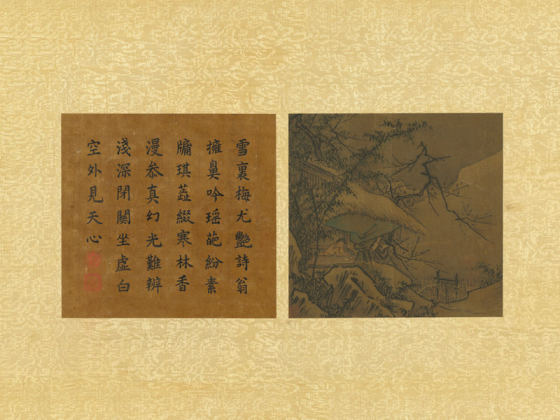 雪裏梅尤艷詩翁
擁鼻吟瑶葩紛素
牖琪蕋綴寒林香
漫参真幻光難辨
淺深閉關坐虚白
空外見天心